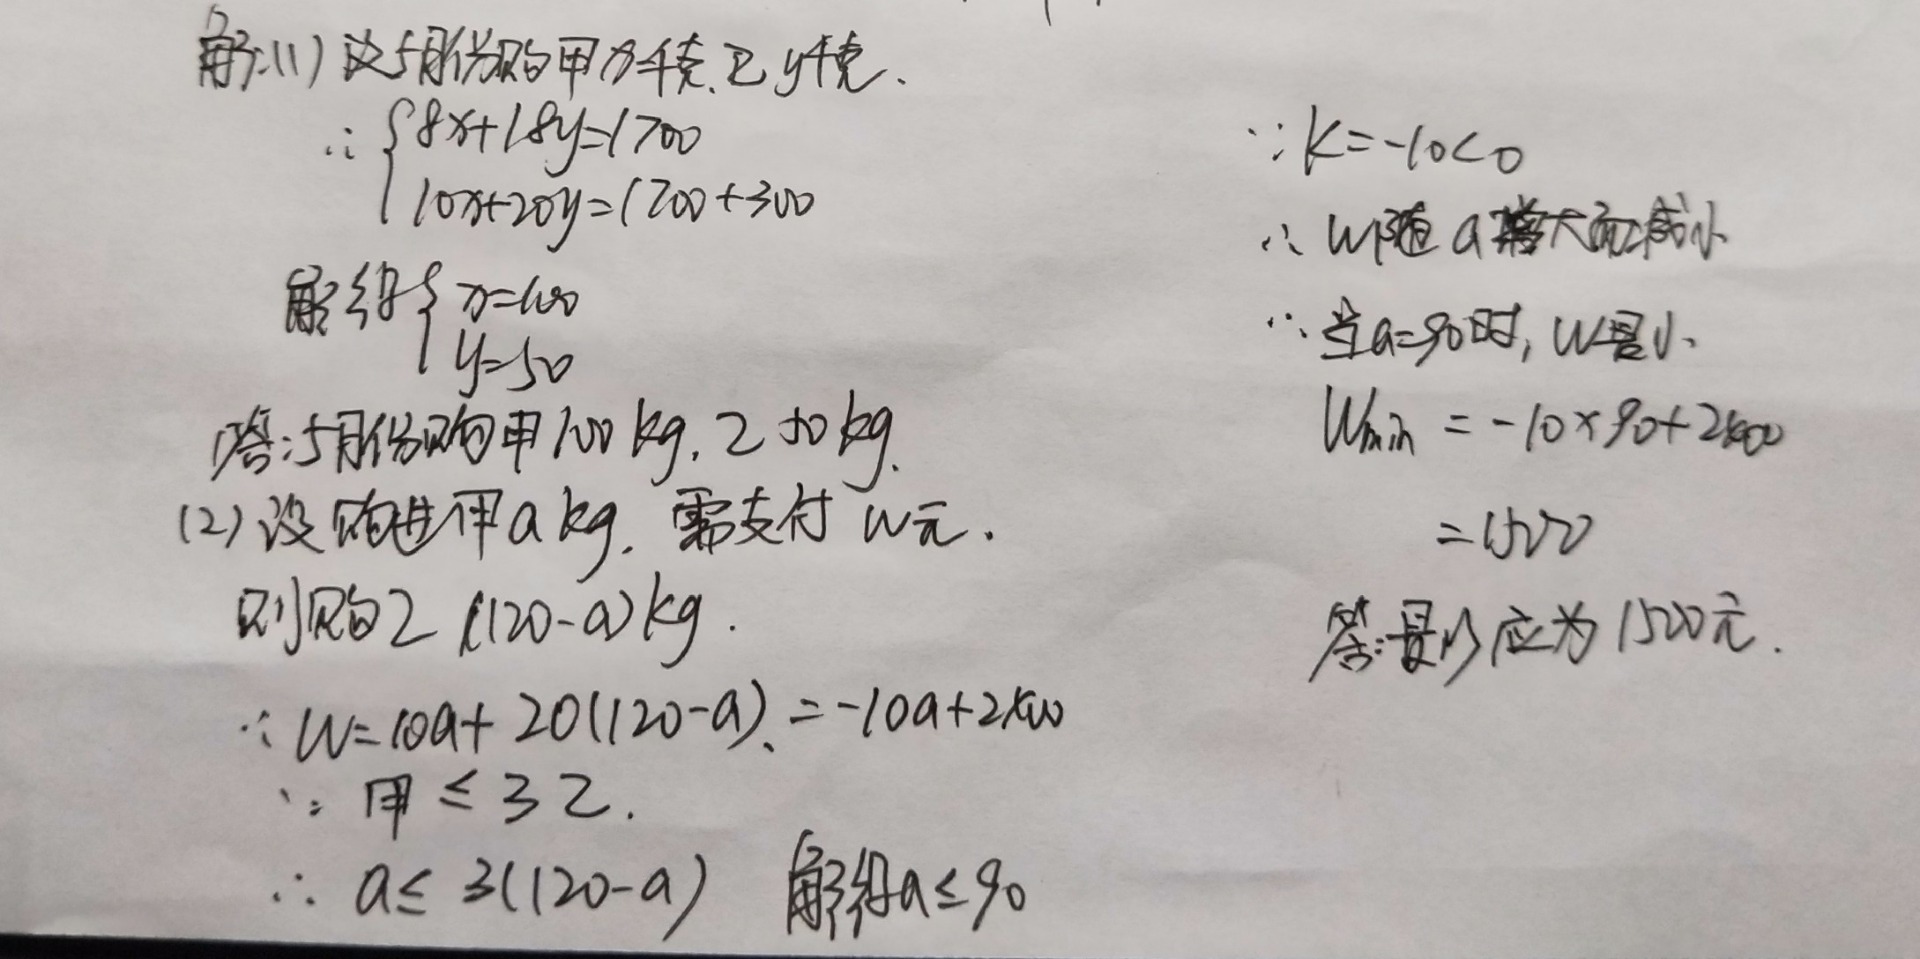 解:(1) 设5月份购甲x千克,乙y千克.
∴ { 8x+18y=1700
10x+20y=1700+300
解得{ x=100
y=50
答:5月份购甲100kg,乙50kg.
(2)设购进甲a kg,需支付w元.
则购乙(120-a)kg.
∴ W=10a+20(120-a)=-10a+2400
∵ 甲≤3乙.
∴ a≤3(120-a) 解得a≤90
∵K=-10<0
∴ W随a增大而减小
∴当a=90时,W最小.
Wmin=-10×90+2400
=1500
答:最少应为1500元.